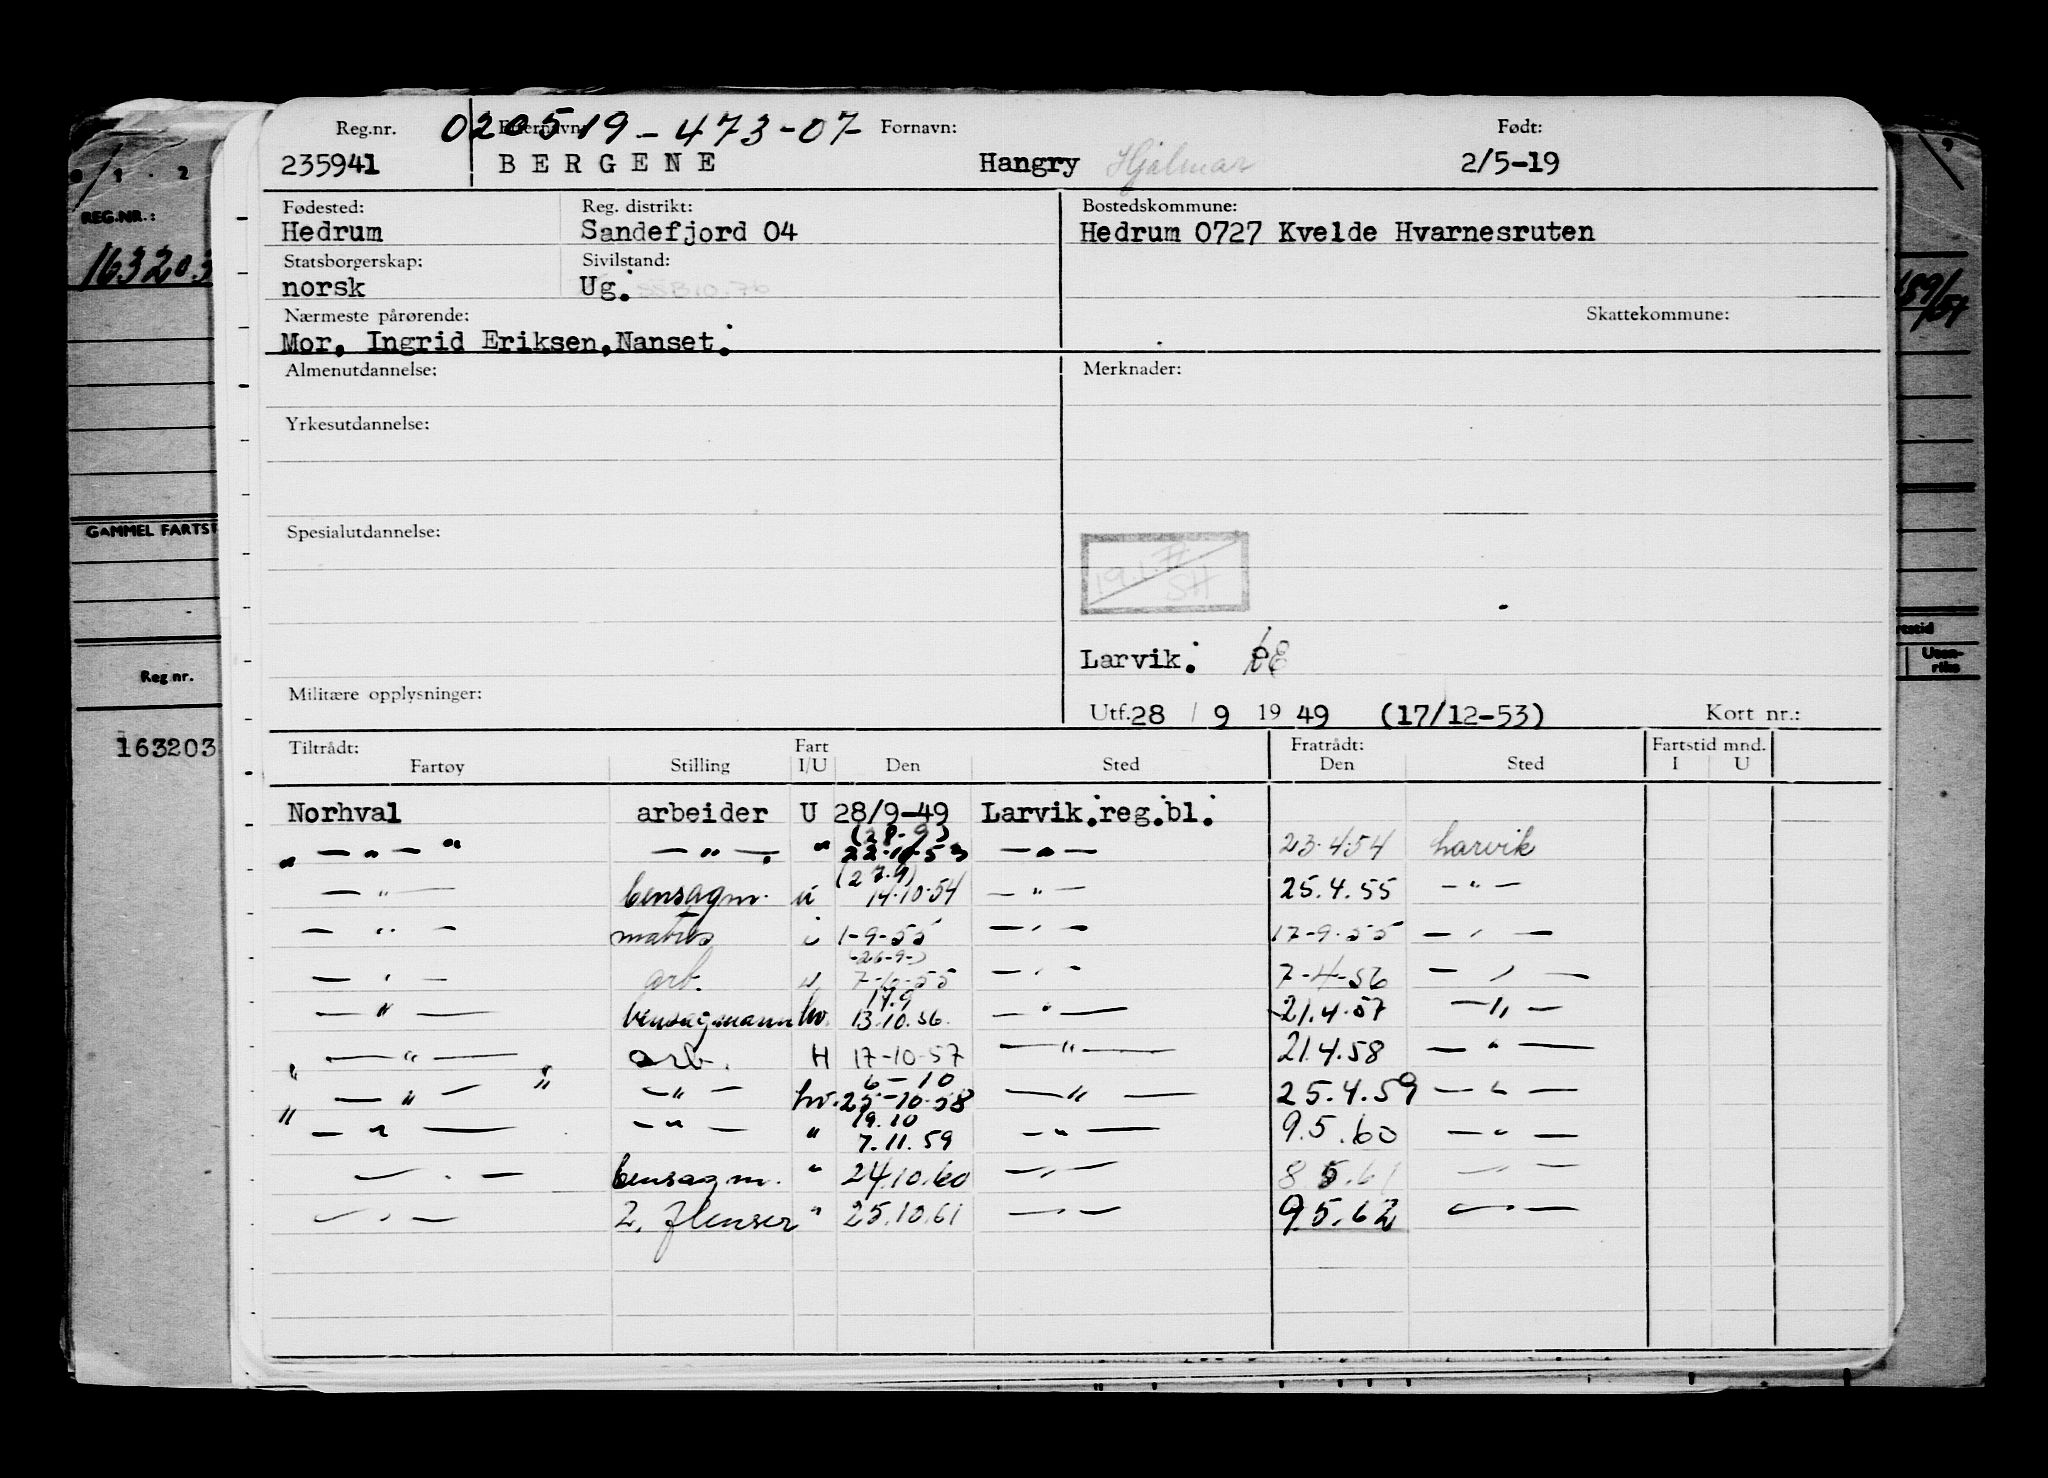 Reg.nr. 020519-473-07 Etternavn: Fornavn: Født:
235941 BERGENE Hangry Hjalmar 2/5-19
Fødested: Reg. distrikt: Bostedskommune:
Hedrum Sandefjord 04 Hedrum 0727 Kvelde Hvarnesruten
Statsborgerskap: Sivilstand:
norsk Ug.
Nærmeste pårørende: Skattekommune:
Mor, Ingrid Eriksen, Nanset.
Almenutdannelse: Merknader:
Yrkesutdannelse:
Spesialutdannelse:
SH
Larvik:
Militære opplysninger:
Utf. 28 / 9 19 49 (17/12-53) Kort nr.:
Tiltrådt: Fart Fratrådt: Fartstid mnd.
Fartøy Stilling I/U Den Sted Den Sted I U
Norhval arbeider U 28/9-49 Larvik.reg.bl.
(28.9)
" — " — " — " — " 22.10.53 — " — 23.4.54 Larvik
(27.9)
— " — bensagm. u 14.10.54 — " — 25.4.55 — " —
— " — matros i 1-9-55 — " — 17-9-55 — " —
(26-9-)
— " — arb. u 7-10-55 — " — 7-4-56 — " —
17.9
— " — bensagmann hv. 13.10.56. — " — 21.4.57 — " —
— " — arb. H 17-10-57 — " — 21.4.58 — " —
6-10
" — " — " — " — hv. 25-10-58 — " — 25.4.59 — " —
19.10
" — " — — " — " 7.11.59 — " — 9.5.60 — " —
— " — bensagm. " 24.10.60 — " — 8.5.61 — " —
— " — 2. flenser " 25.10.61 — " — 9.5.62 — " —
REG.NR.:
163203
GAMMEL FARTST
Reg.nr.
163203
159/54
rtstid
Uten-
riks